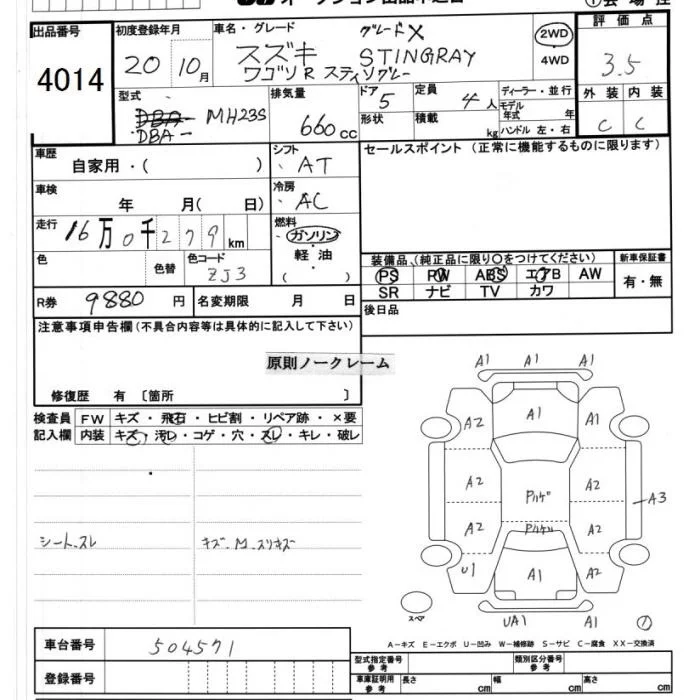 出品番号
4014
初度登録年月
20 10月
車名・グレード
グレードX
スズキ STINGRAY
ワゴンR スティングレー
2WD
・
4WD
評価点
3.5
外装 内装
C C
型式
DBA- MH23S
排気量
660cc
ドア
5
形状
定員
4人
積載
kg
ディーラー・並行
モデル年式 年
ハンドル 左・右
車歴
自家用・( )
シフト
AT
車検
年 月( 日)
冷房
AC
走行
16万0千279km
燃料
ガソリン
・
軽油
( )
色
色替
色コード
ZJ3
R券 9880円
名変期限 月 日
セールスポイント (正常に機能するものに限ります)
装備品、(純正品に限り○をつけてください)
PS PW ABS エアB AW
SR ナビ TV カワ
新車保証書
有・無
後日品
注意事項申告欄(不具合内容等は具体的に記入して下さい)
原則ノークレーム
修復歴 有 〔箇所 〕
検査員 FW キズ・飛石・ヒビ割・リペア跡・×要
記入欄 内装 キズ・汚レ・コゲ・穴・スレ・キレ・破レ
シートスレ
キズ.M.スリキズ
A1 A1 A1
A2 A1 A1
A2 Pハゲ A2
A3
A2 Pハゲ A2
U1 A1 A2
スペア
UA1 A1
A-キズ E-エクボ U-凹み W-補修跡 S-サビ C-腐食 XX-交換済
車台番号 504571
登録番号
型式指定番号
参考
類別区分番号
参考
車庫証明用
参考
長さ cm
幅 cm
高さ cm